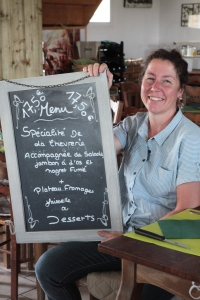 17,50 Menu 17,50
Spécialité de
la chèvrerie
Accompagnée de Salade
jambon d'os et
magret Fumé
+
Plateau Fromages
faisselle
ou
Desserts